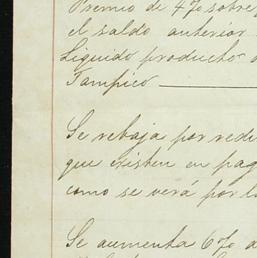 Premio de 4% sobre
el saldo anterior
Liquido producto
Tampico
Se rebaja por
que existen en
como se verá por
Se aumenta 6%